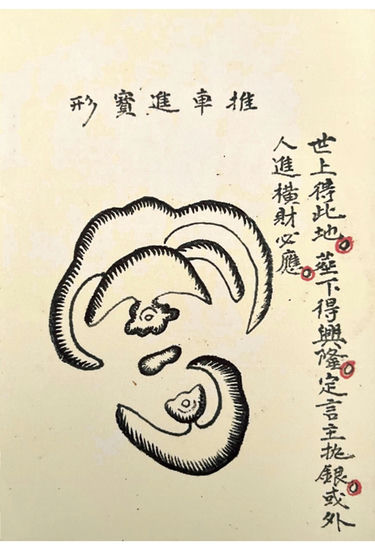 推車進寶形
世上得此地葬下得興隆定言主抛銀或外
人進橫財必應